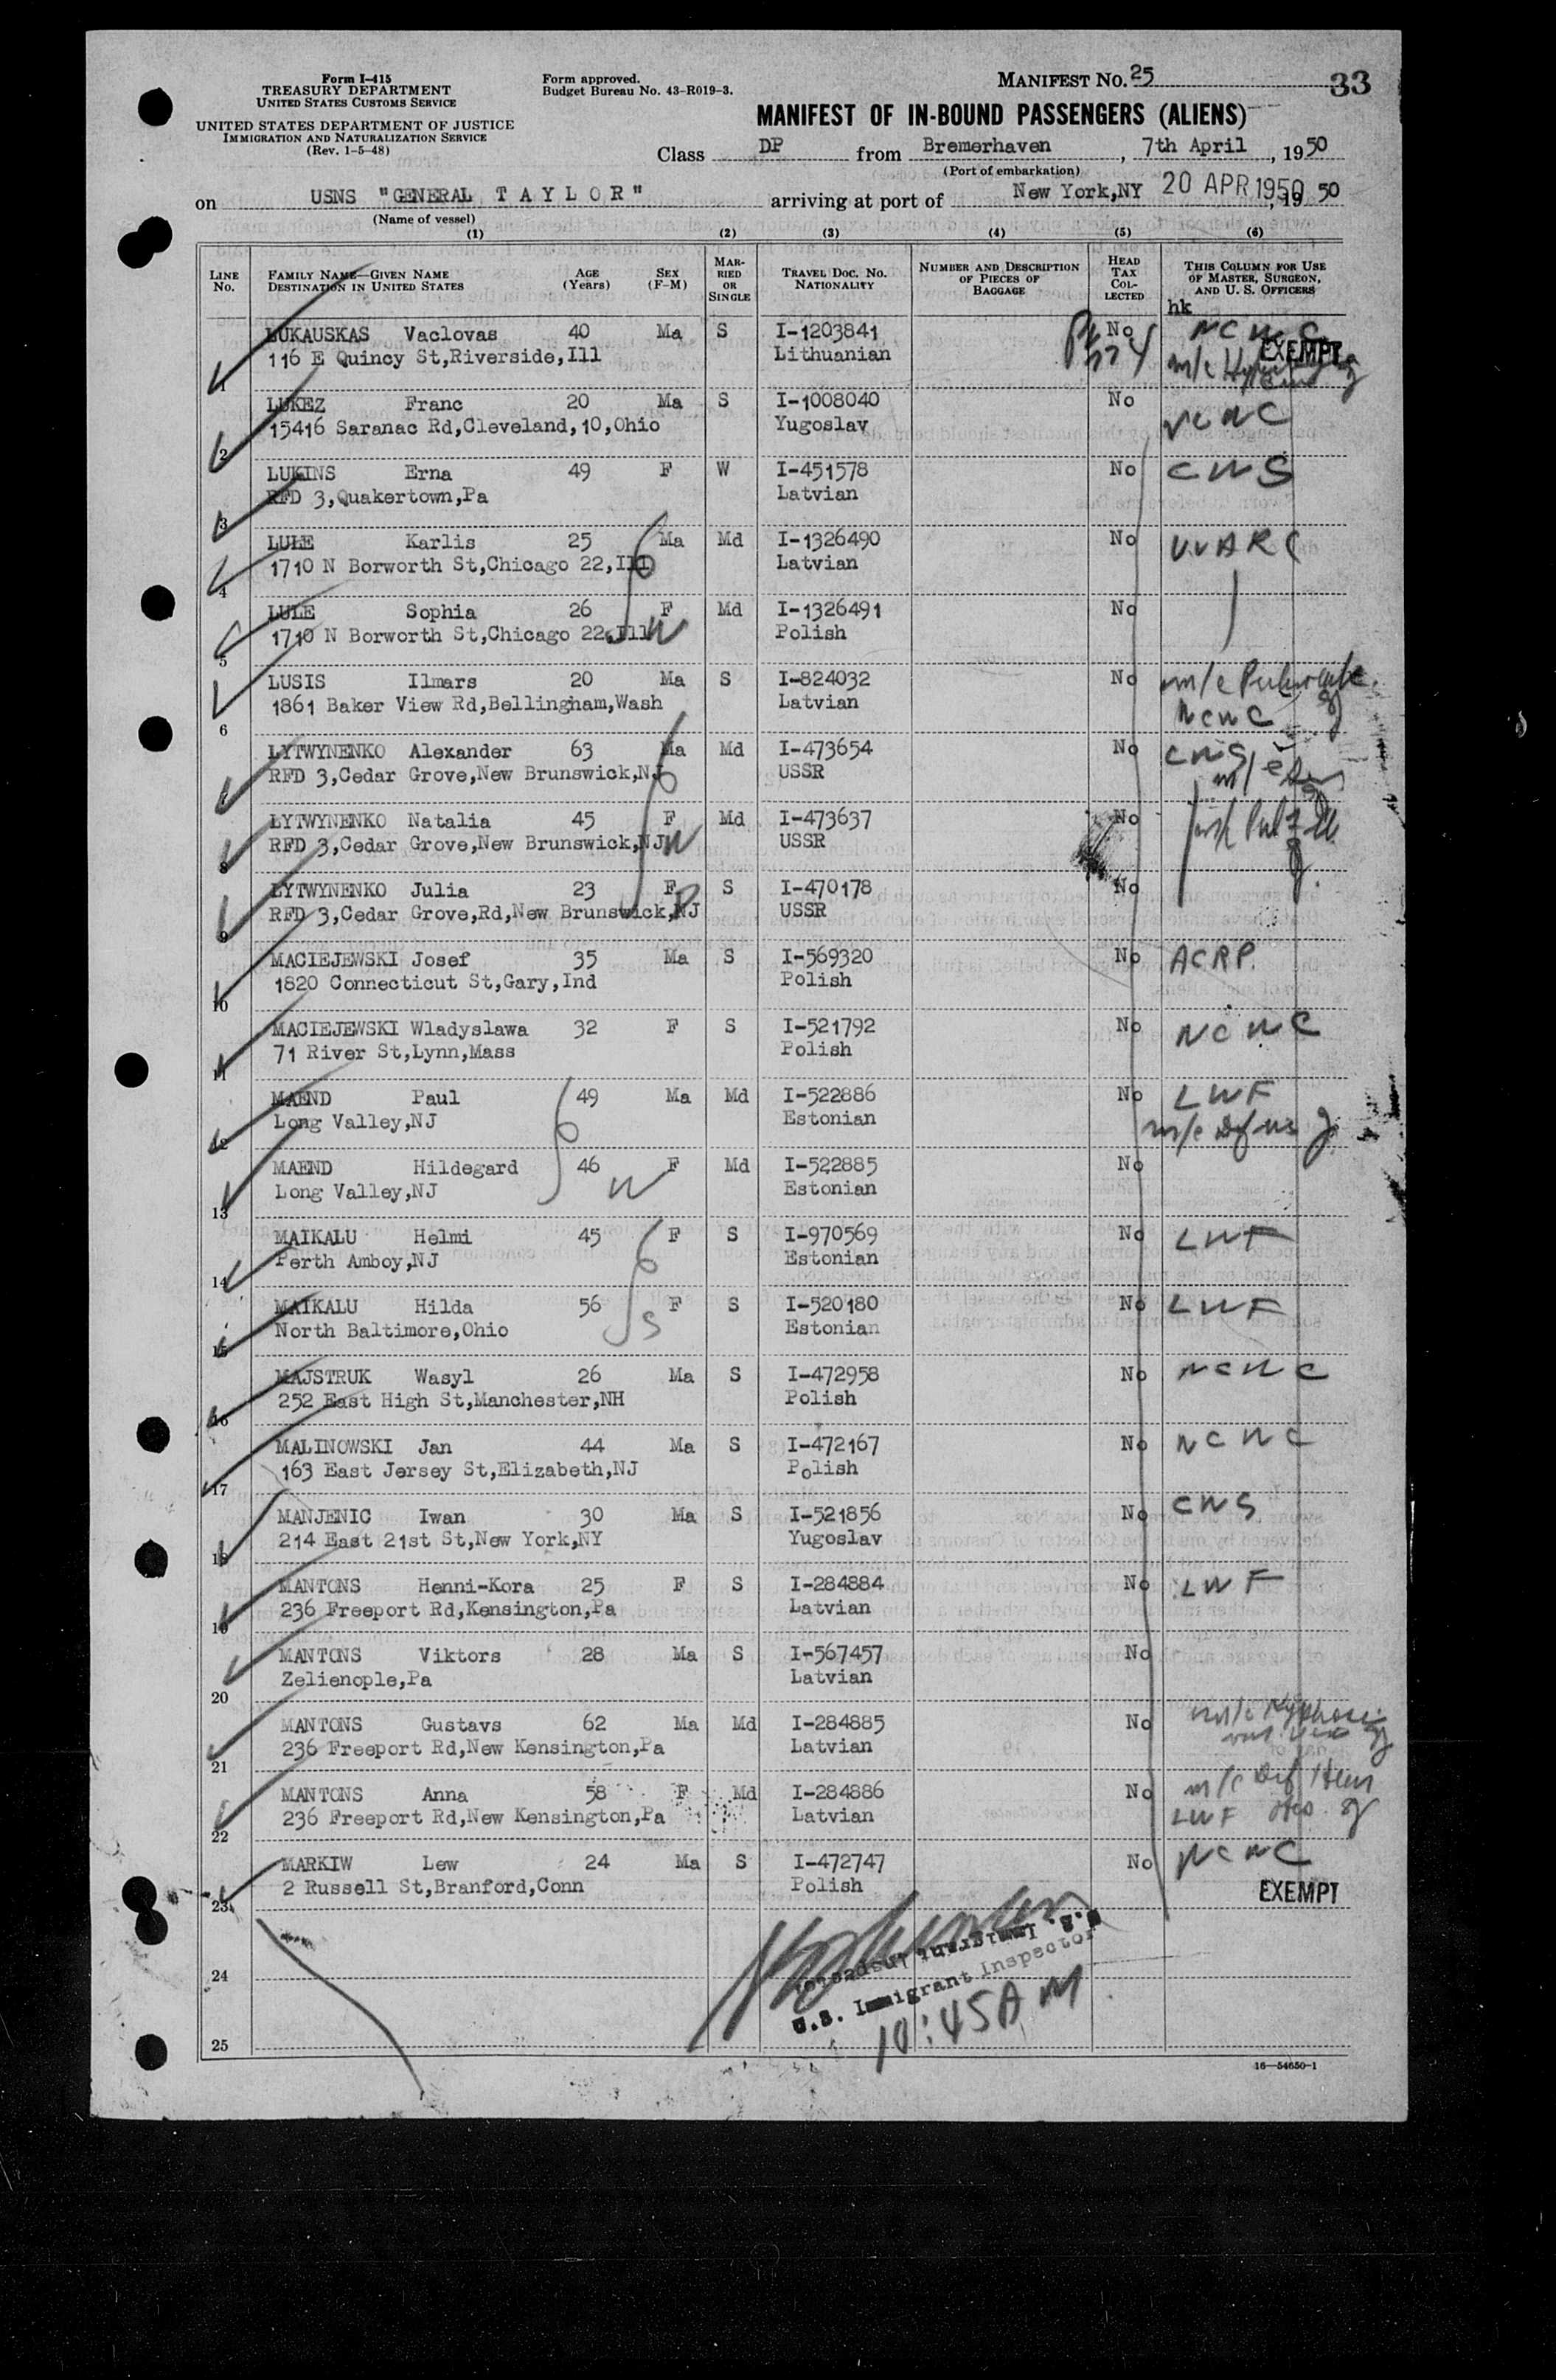 Form I-415
TREASURY DEPARTMENT
UNITED STATES CUSTOMS SERVICE
UNITED STATES DEPARTMENT OF JUSTICE
IMMIGRATION AND NATURALIZATION SERVICE
(Rev. 1-5-48)
Form approved.
Budget Bureau No. 43-R019-3.
MANIFEST NO. 25
33
MANIFEST OF IN-BOUND PASSENGERS (ALIENS)
Class DP from Bremerhaven, 7th April, 1950
(Port of embarkation)
on USNS "GENERAL TAYLOR" arriving at port of New York,NY 20 APR 1950, 19 50
(Name of vessel)
(1) (2) (3) (4) (5) (6)
LINE No. FAMILY NAME—GIVEN NAME DESTINATION IN UNITED STATES AGE (Years) SEX (F-M) MARRIED OR SINGLE TRAVEL DOC. No. NATIONALITY NUMBER AND DESCRIPTION OF PIECES OF BAGGAGE HEAD TAX COLLECTED THIS COLUMN FOR USE OF MASTER, SURGEON, AND U. S. OFFICERS
hk
LUKAUSKAS Vaclovas 40 Ma S I-1203841 No NCWC
116 E Quincy St,Riverside,Ill Lithuanian EXEMPT
1
LUKEZ Franc 20 Ma S I-1008040 No NCWC
15416 Saranac Rd,Cleveland,10,Ohio Yugoslav
2
LUKINS Erna 49 F W I-451578 No CWS
RFD 3,Quakertown,Pa Latvian
3
LULE Karlis 25 Ma Md I-1326490 No
1710 N Borworth St,Chicago 22,Ill Latvian
4
LULE Sophia 26 F Md I-1326491 No
1710 N Borworth St,Chicago 22,Ill W Polish
5
LUSIS Ilmars 20 Ma S I-824032 No
1861 Baker View Rd,Bellingham,Wash Latvian NCWC
6
LYTWYNENKO Alexander 63 Ma Md I-473654 No CWS
RFD 3,Cedar Grove,New Brunswick,NJ USSR
LYTWYNENKO Natalia 45 F Md I-473637 No
RFD 3,Cedar Grove,New Brunswick,NJ W USSR
8
LYTWYNENKO Julia 23 F S I-470178 No
RFD 3,Cedar Grove,Rd,New Brunswick,NJ USSR
9
MACIEJEWSKI Josef 35 Ma S I-569320 No ACRP
1820 Connecticut St,Gary,Ind Polish
10
MACIEJEWSKI Wladyslawa 32 F S I-521792 No NCWC
71 River St,Lynn,Mass Polish
11
MAEND Paul 49 Ma Md I-522886 No LWF
Long Valley,NJ Estonian
12
MAEND Hildegard 46 F Md I-522885 No
Long Valley,NJ W Estonian
13
MAIKALU Helmi 45 F S I-970569 No LWF
Perth Amboy,NJ Estonian
14
MAIKALU Hilda 56 F S I-520180 No LWF
North Baltimore,Ohio S Estonian
15
MAJSTRUK Wasyl 26 Ma S I-472958 No NCWC
252 East High St,Manchester,NH Polish
16
MALINOWSKI Jan 44 Ma S I-472167 No NCWC
163 East Jersey St,Elizabeth,NJ Polish
17
MANJENIC Iwan 30 Ma S I-521856 No CWS
214 East 21st St,New York,NY Yugoslav
18
MANTONS Henni-Kora 25 F S I-284884 No LWF
236 Freeport Rd,Kensington,Pa Latvian
19
MANTONS Viktors 28 Ma S I-567457 No
Zelienople,Pa Latvian
20
MANTONS Gustavs 62 Ma Md I-284885 No
236 Freeport Rd,New Kensington,Pa Latvian
21
MANTONS Anna 58 F Md I-284886 No
236 Freeport Rd,New Kensington,Pa Latvian LWF
22
MARKIW Lew 24 Ma S I-472747 No NCWC
2 Russell St,Branford,Conn Polish EXEMPT
23
U.S. Immigrant Inspector
U.S. Immigrant Inspector
24
10:45 AM
25
16—54650-1